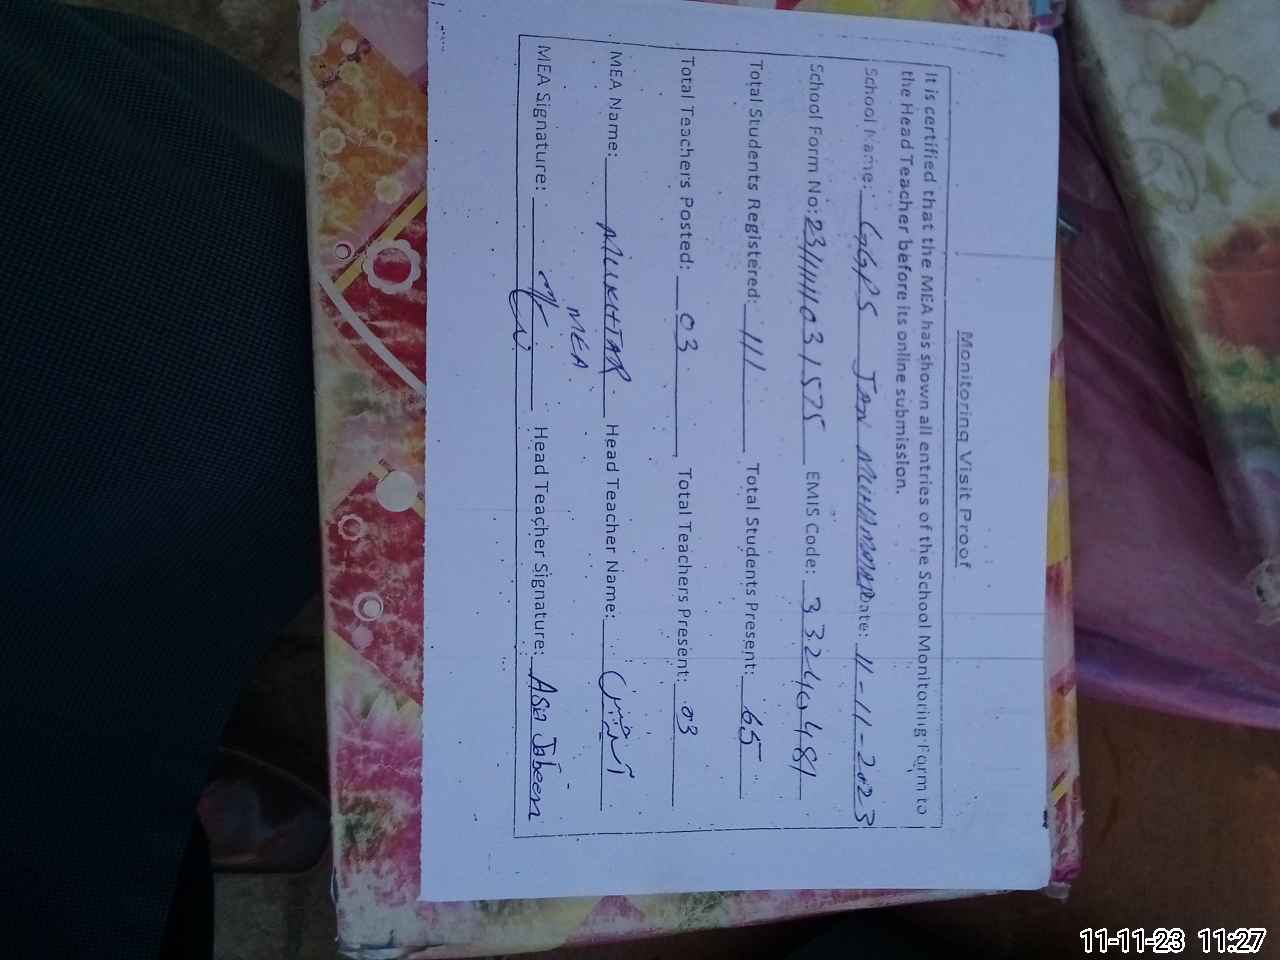 Monitoring Visit Proof
It is certified that the MEA has shown all entries of the School Monitoring Form to
the Head Teacher before its online submission.
School Name: GGPS JAN MUHAMMAD Date: 11-11-2023
School Form No: 231111031575 EMIS Code: 33244481
Total Students Registered: 111 Total Students Present: 65
Total Teachers Posted: 03 Total Teachers Present: 03
MEA Name: MUKHTAR Head Teacher Name:
MEA
MEA Signature: Head Teacher Signature: Asa Jabeen
11-11-23 11:27